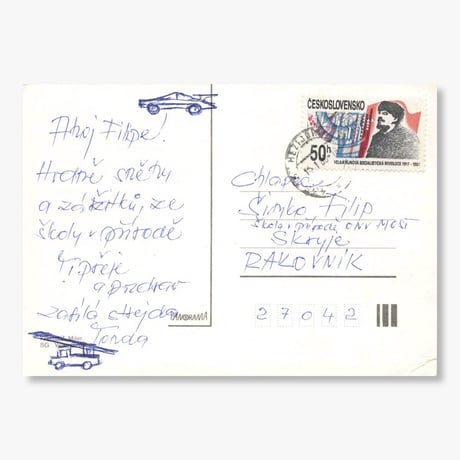 Ahoj Filipe!
Hodně sněhu
a zážitků, ze
školy v přírodě
Ti přeje
a pozdrav
zasílá
Tonda
PANORAMA
ČESKOSLOVENSKO
50h
VELKÁ ŘÍJNOVÁ SOCIALISTICKÁ REVOLUCE 1917-1987
Šimko Filip
Škola v přírodě ONV MOST
Skryje
RAKOVNÍK
27042